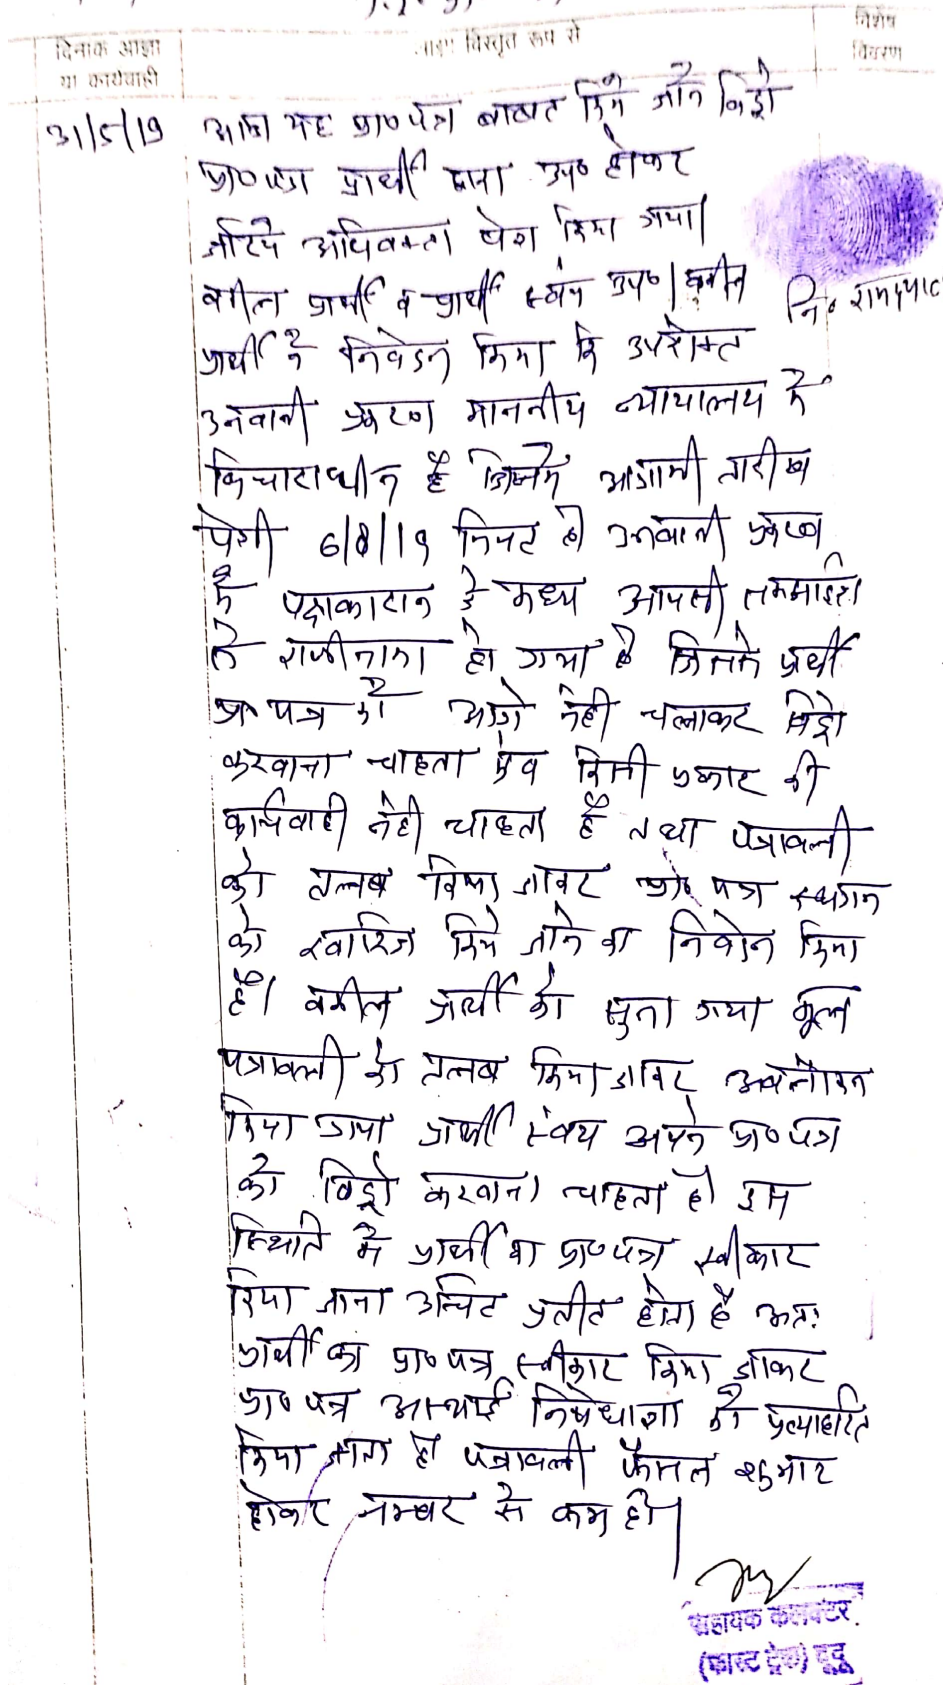 दिनांक आज्ञा
या कार्यवाही
विस्तृत रूप से
विशेष
विवरण
31/5/19
आज यह प्रा० पत्र बाबत किये जाने विड्रो
प्रा० पत्र प्रार्थी द्वारा उप० होकर
जरिये अधिवक्ता पेश किया गया।
वकील प्रार्थी व प्रार्थी स्वंय उप०। वकील
नि० रामदयाल
प्रार्थी ने निवेदन किया कि उपरोक्त
उनवानी प्रकरण माननीय न्यायालय में
विचाराधीन है जिसमें आगामी तारीख
पेशी 6/8/19 नियत है उनवानी प्रकरण
में पक्षकारान के मध्य आपसी समझाईश
से राजीनामा हो गया है जिससे प्रार्थी
प्रा० पत्र को आगे नही चलाकर विड्रो
करवाना चाहता एंव किसी प्रकार की
कार्यवाही नही चाहता है तथा पत्रावली
को तलब किया जाकर प्रा० पत्र स्थगन
को खारिज किये जाने का निवेदन किया
है। वकील प्रार्थी को सुना गया मूल
पत्रावली को तलब किया जाकर अवलोकन
किया गया प्रार्थी स्वंय अपने प्रा० पत्र
को विड्रो करवाना चाहता है इस
स्थिति में प्रार्थी का प्रा० पत्र स्वीकार
किया जाना उचित प्रतीत होता है अतः
प्रार्थी का प्रा० पत्र स्वीकार किया जाकर
प्रा० पत्र अस्थाई निषेधाज्ञा को प्रत्याहरित
किया जाता है पत्रावली फैसल शुमार
होकर नम्बर से कम हो।
सहायक कलक्टर
(फास्ट ट्रेक) दूदू